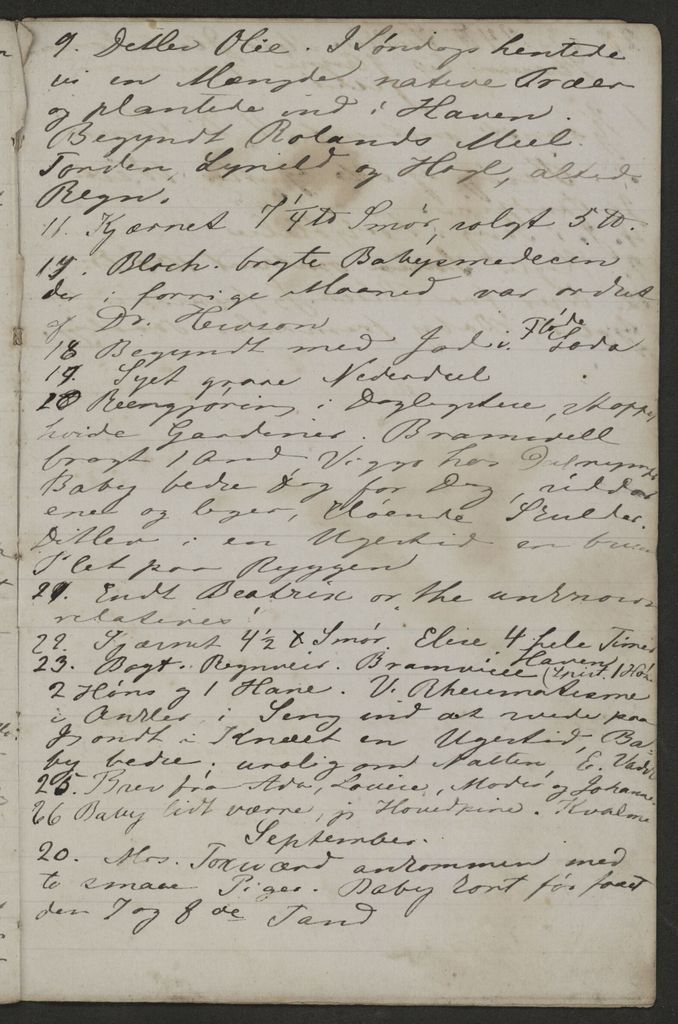 9. Detlev Olie. I Søndags hentede
vi en Mængde native Træer
og plantede ind i Haven.
Begyndt Rolands Meel.
Torden, Lynild og Hagl, altid
Regn.
11. Kjærnet 7 1/4 ℔ Smør, solgt 5 ℔.
17. Bloch. bragte Babysmedecin
der i forrige Maaned var ordret
af Dr. Hewson
18 Begyndt med Jod i Fløde
19. Syet graae Nederdeel
20 Reengjøring i Dagligstue,
hvide Gardiner. Bramwell
bragt 1 And, Viggo hos
Baby bedre Dag for Dag,
ene og leger, Skulder.
Ditlev i en Ugestid en
Plet paa Ryggen
21. Endt Beatrix or "the unknown
relatives"
22. Kjærnet 4 1/2 ℔ Smør, Elise 4 hele Timer
Haven
23. Bagt. Regnveir. Bramwell
2 Høns og 1 Hane. V. Rheumatisme
i Ankler, i Seng ind at svede paa
J. ondt i Knæet en Ugestid, Ba-
by bedre, urolig om Natten, E.
25. Brev fra Ada, Louise, Moder og Johanne
26 Baby lidt værre, jg Hovedpine. Kvalme
September.
20. Mrs. Toxværd ankommen med
to smaae Piger. Baby kort før faaet
den 7 og 8de Tand